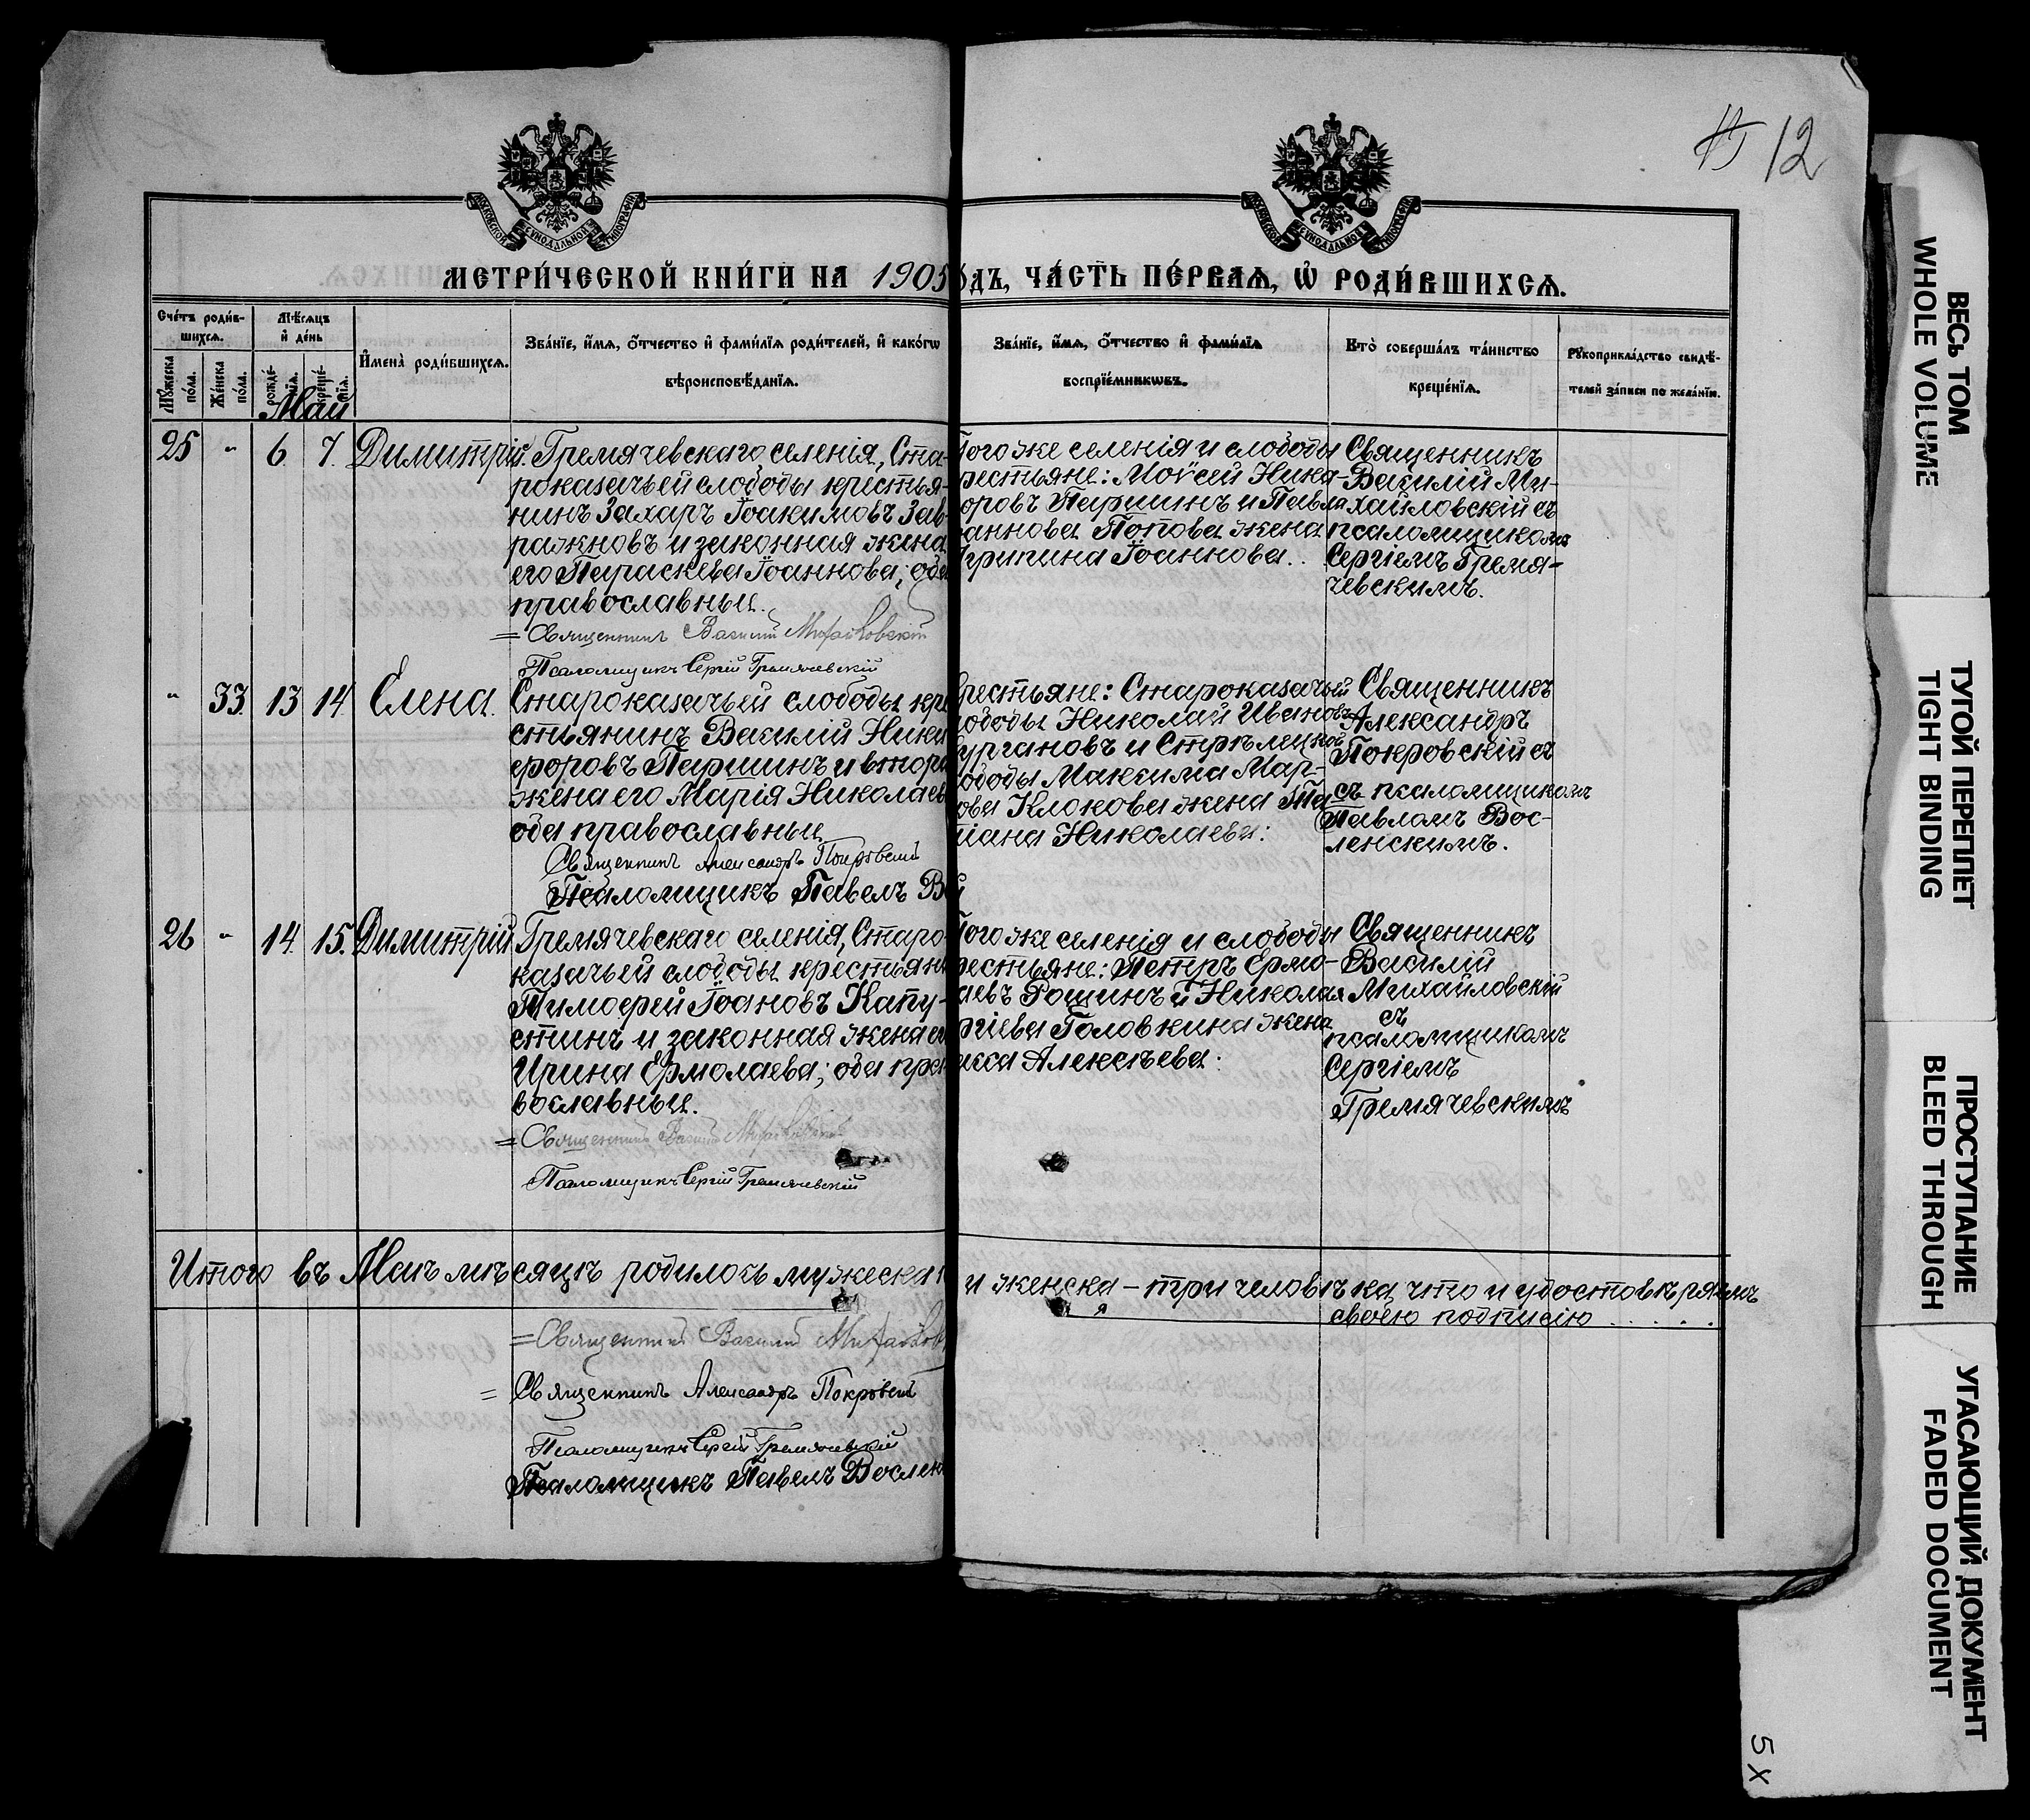 12
МОСКОВСКОЙ СѴНОДАЛЬНОЙ ТИПОГРАФІИ
МОСКОВСКОЙ СѴНОДАЛЬНОЙ ТИПОГРАФІИ
МЕТРИ́ЧЕСКОЙ КНИ́ГИ НА 1905
ОДЪ, ЧА́СТЬ ПЕ́РВАѦ, Ѿ РОДИ́ВШИХСѦ.
Сче́тъ роди́в-
шихсѧ.
Мꙋ́жеска по́ла.
Же́нска по́ла.
Мѣ́сѧцъ
и҆ де́нь
рожде́-
нїѧ.
креще́-
нїѧ.
И҆мена̀ роди́вшихсѧ.
Зва́нїе, и҆́мѧ, ѻ҆́тчество и҆ фами́лїѧ роди́телей, и҆ како́гѡ
вѣроисповѣ́данїѧ.
Зва́нїе, и҆́мѧ, ѻ҆́тчество и҆ фами́лїѧ
воспрїе́мникѡвъ.
Кто̀ соверша́лъ та́инство
креще́нїѧ.
Рꙋкоприкла́дство свидѣ́-
телей за́писи по жела́нїю.
Май
25 " 6. 7. Димитрій.
Гремячевскаго селенія, Ста-
роказачьей слободы крестья-
нинъ Захаръ Іоакимовъ Зав-
ражновъ и законная жена
его Параскева Іоаннова; оба
православные.
= Священникъ Василій Михайловскій
Псаломщикъ Сергій Гремячевскій
Того же селенія и слободы
рестьяне: Моѵсей Ники-
форовъ Паршинъ и Павла
аннова Попова жена
грипина Іоаннова.
Священникъ
Василій Ми-
хайловскій съ
псаломщикомъ
Сергіемъ Гремя-
чевскимъ.
" 33. 13. 14. Елена.
Староказачьей слободы кре
стьянинъ Василій Ники
форовъ Паршинъ и втора
жена его Марія Николаев
оба православные
Священникъ Александръ Покровскій
Псаломщикъ Павелъ Во
рестьяне: Староказачьей
ободы Николай Ивановъ
ургановъ и Стрѣлецкой
ободы Максима Мар-
ова Клокова жена Та
іана Николаева:
Священникъ
Александръ
Покровскій съ
съ псаломщикомъ
Павломъ Вос-
ленскимъ.
26 " 14. 15. Димитрій
Гремячевскаго селенія, Старо-
казачьей слободы крестьяни
Тимофей Іоановъ Капу-
стинъ и законная жена ег
Ирина Ермолаева; оба пра
вославные.
= Священникъ Василій Михайловскій
Псаломщикъ Сергій Гремячевскій
Того же селенія и слободы
рестьяне: Петръ Ермо-
аевъ Рощинъ и Николая
ргіева Головкина жена
исса Алексѣева:
Священникъ
Василій
Михайловскій
съ
псаломщикомъ
Сергіемъ
Гремячевскимъ
Итого въ Маѣ мѣсяцѣ родилось мужеска
и женска - три человѣка, что и удостовѣряемъ
своею подписію . . . . . .
= Священникъ Василій Михайлов
= Священникъ Александръ Покровскій
Псаломщикъ Сергій Гремячевскій
Псаломщикъ Павелъ Вослен
ВЕСЬ ТОМ
WHOLE VOLUME
ТУГОЙ ПЕРЕПЛЁТ
TIGHT BINDING
ПРОСТУПАНИЕ
BLEED THROUGH
УГАСАЮЩИЙ ДОКУМЕНТ
FADED DOCUMENT
5 X